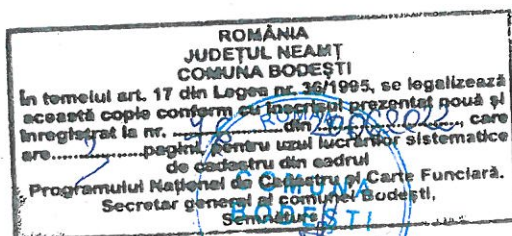 ROMÂNIA
JUDEȚUL NEAMȚ
COMUNA BODEȘTI
În temeiul art. 17 din Legea nr. 36/1995, se legalizează
această copie conform cu înscrisul prezentat nouă și
înregistrat la nr. ................din ...................., care
are...............pagini, pentru uzul lucrărilor sistematice
de cadastru din cadrul
Programului Național de Cadastru și Carte Funciară.
Secretar general al comunei Bodești,
Semnătura
ROMÂNIA
COMUNA
BODEȘTI